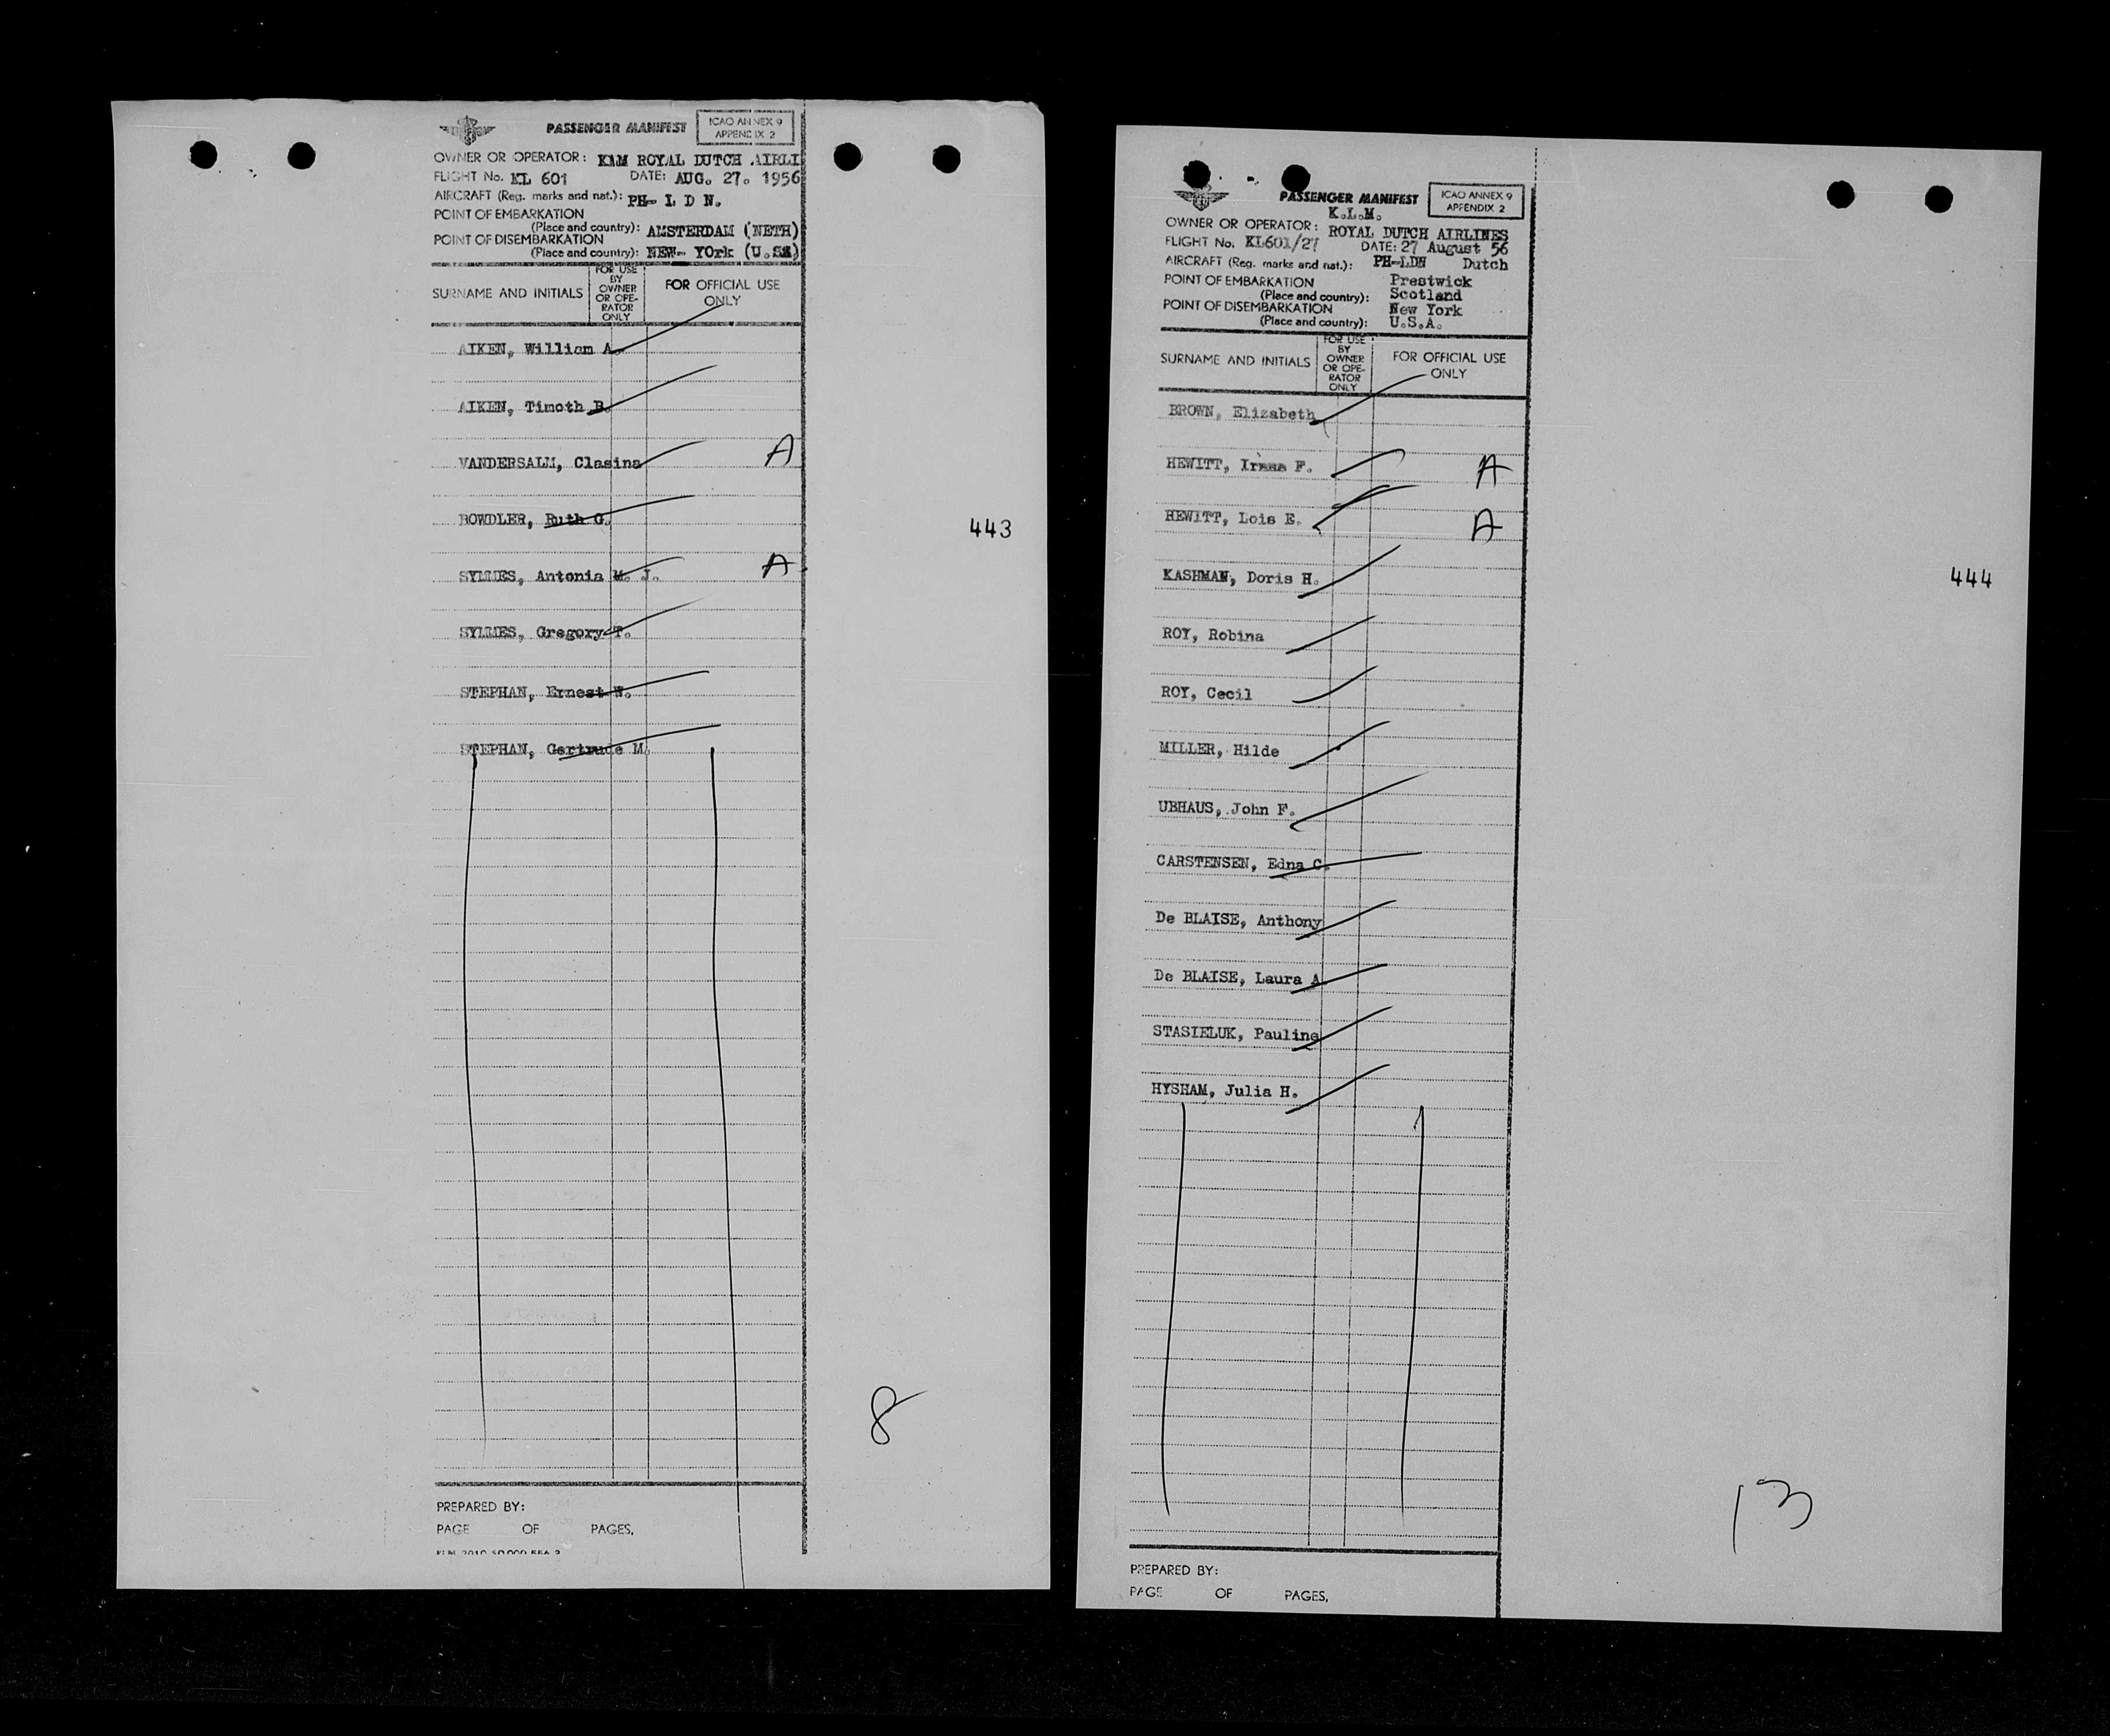 PASSENGER MANIFEST
ICAO ANNEX 9
APPENDIX 2
OWNER OR OPERATOR: KLM ROYAL DUTCH AIRLI
FLIGHT No. KL 601 DATE: AUG. 27. 1956
AIRCRAFT (Reg. marks and nat.): PH- L D N.
POINT OF EMBARKATION
(Place and country): AMSTERDAM (NETH)
POINT OF DISEMBARKATION
(Place and country): NEW- YOrk (U.SA)
SURNAME AND INITIALS
FOR USE
BY
OWNER
OR OPE-
RATOR
ONLY
FOR OFFICIAL USE
ONLY
AIKEN, William A.
AIKEN, Timoth B.
VANDERSALM, Clasina A
BOWDLER, Ruth G.
443
SYLMES, Antonia M. J. A
SYLMES, Gregory T.
STEPHAN, Ernest W.
STEPHAN, Gertrude M.
8
PREPARED BY:
PAGE OF PAGES,
PASSENGER MANIFEST
ICAO ANNEX 9
APPENDIX 2
K.L.M.
OWNER OR OPERATOR: ROYAL DUTCH AIRLINES
FLIGHT No. KL601/27 DATE: 27 August 56
AIRCRAFT (Reg. marks and nat.): PH-LDN Dutch
POINT OF EMBARKATION Prestwick
(Place and country): Scotland
POINT OF DISEMBARKATION New York
(Place and country): U.S.A.
SURNAME AND INITIALS
FOR USE
BY
OWNER
OR OPE-
RATOR
ONLY
FOR OFFICIAL USE
ONLY
BROWN, Elizabeth
HEWITT, F. A
HEWITT, Lois E. A
KASHMAN, Doris H.
444
ROY, Robina
ROY, Cecil
MILLER, Hilde
UBHAUS, John F.
CARSTENSEN, Edna C.
De BLAISE, Anthony
De BLAISE, Laura A
STASIELUK, Pauline
HYSHAM, Julia H.
13
PREPARED BY:
PAGE OF PAGES,